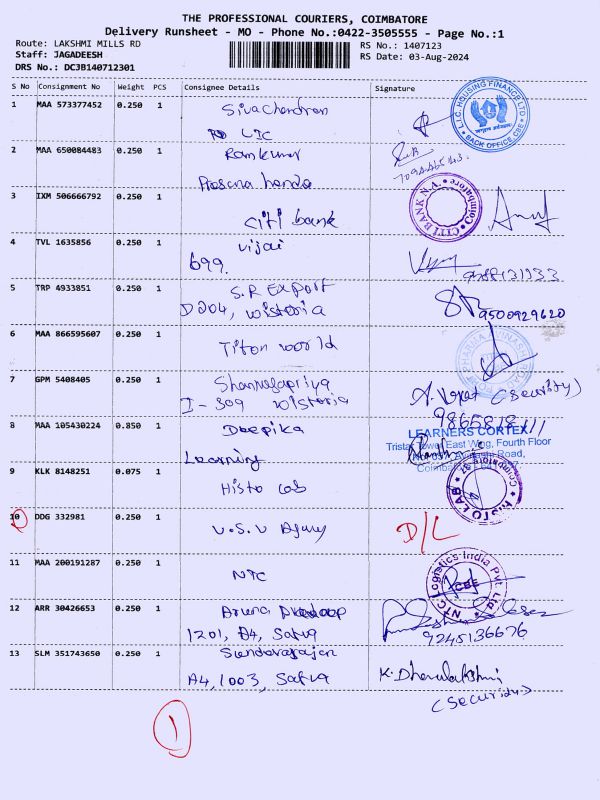 THE PROFESSIONAL COURIERS, COIMBATORE
Delivery Runsheet - MO - Phone No.:0422-3505555 - Page No.:1
Route: LAKSHMI MILLS RD
Staff: JAGADEESH
DRS No.: DCJB140712301
RS No.: 1407123
RS Date: 03-Aug-2024
S No Consignment No Weight PCS Consignee Details Signature
1 MAA 573377452 0.250 1 Sivachandran
LIC
L.I.C. HOUSING FINANCE LTD
BACK OFFICE CBE
2 MAA 650084483 0.250 1 Ramkumar
3 IXM 506666792 0.250 1 Citi bank
CITI BANK N.A. Coimbatore
4 TVL 1635856 0.250 1 Vijai
699.
5 TRP 4933851 0.250 1 S.R Export
D204, Wistoria
9500929620
6 MAA 866595607 0.250 1 Titon world
7 GPM 5408405 0.250 1
I-309 Wistoria
(Security)
8 MAA 105430224 0.850 1 Deepika
Learning
LEARNERS CORTEX
Tristar Tower East Wing, Fourth Floor
9 KLK 8148251 0.075 1 Histo Lab
HISTO LAB
Coimbatore
10 DDG 332981 0.250 1 U.S.V
D/L
11 MAA 200191287 0.250 1 NTC
NTC Logistics India Pvt. Ltd.
CBE
12 ARR 30426653 0.250 1 Aruna
1201, A4, Satva
9245136676
13 SLM 351743650 0.250 1 Sundararajan
A4, 1003, Satva
K. Dhanalakshmi
(Security)
1